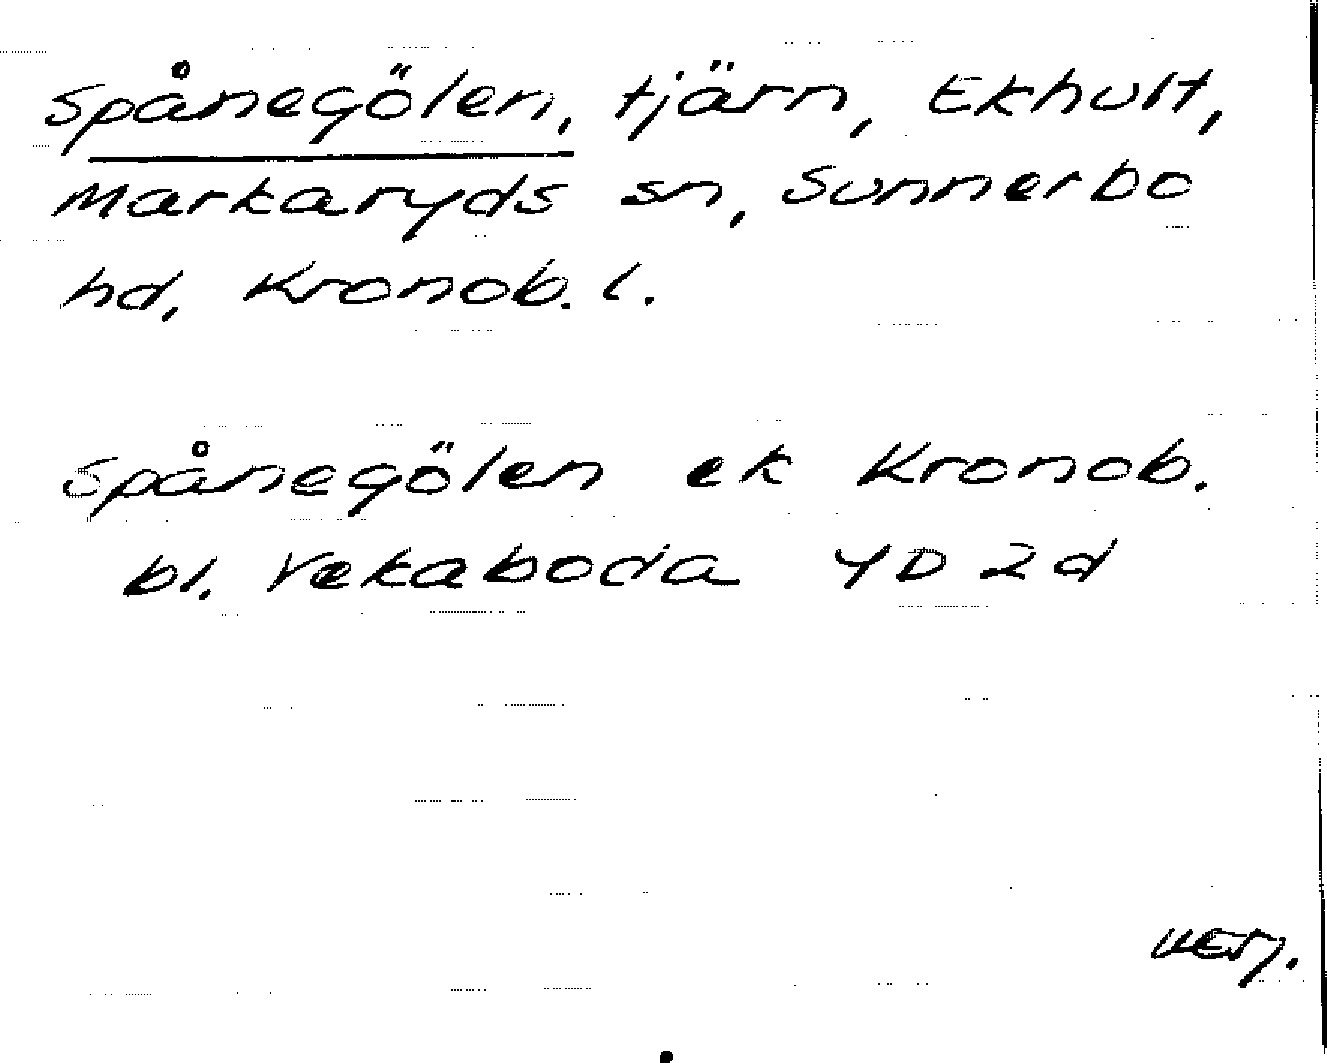 Spånegölen, tjärn, Ekhult,
Markaryds sn, Sunnerbo
hd, Kronob. l.
Spånegölen ek Kronob.
bl. Vekaboda 4D 2d